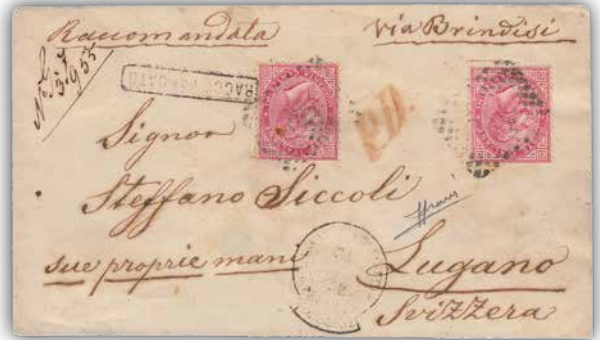 Raccomandata via Brindisi
RACCOMANDATO
P.D.
Signor
Steffano Siccoli
sue proprie mani
Lugano
Svizzera